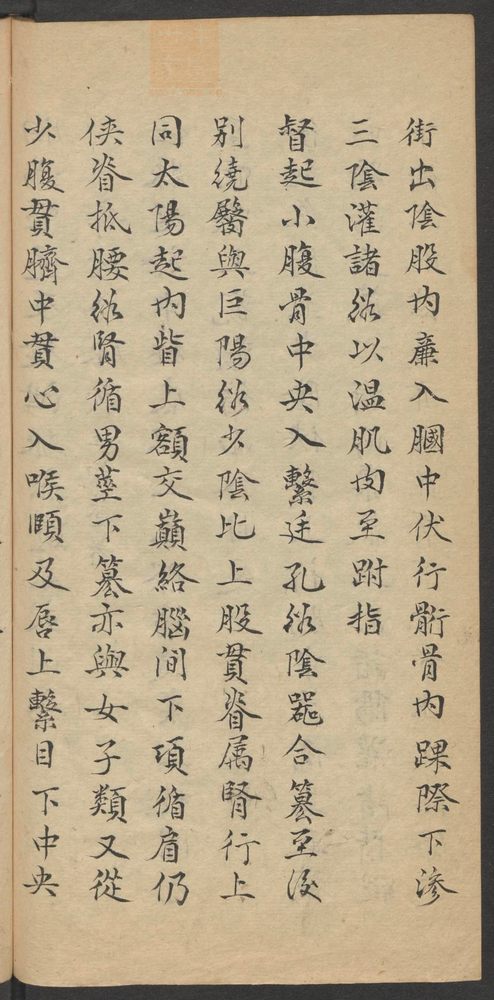 街出陰股内廉入膕中伏行䯒骨内踝際下滲
三陰灌諸絡以温肌肉至跗指
督起小腹骨中央入繫廷孔絡陰器合篡至後
别繞臀與巨陽絡少陰比上股貫脊属腎行上
同太陽起内眥上額交巔絡腦间下項循肩仍
俠脊抵腰絡腎循男莖下篡亦與女子類又從
少腹貫臍中貫心入喉頤及唇上繫目下中央